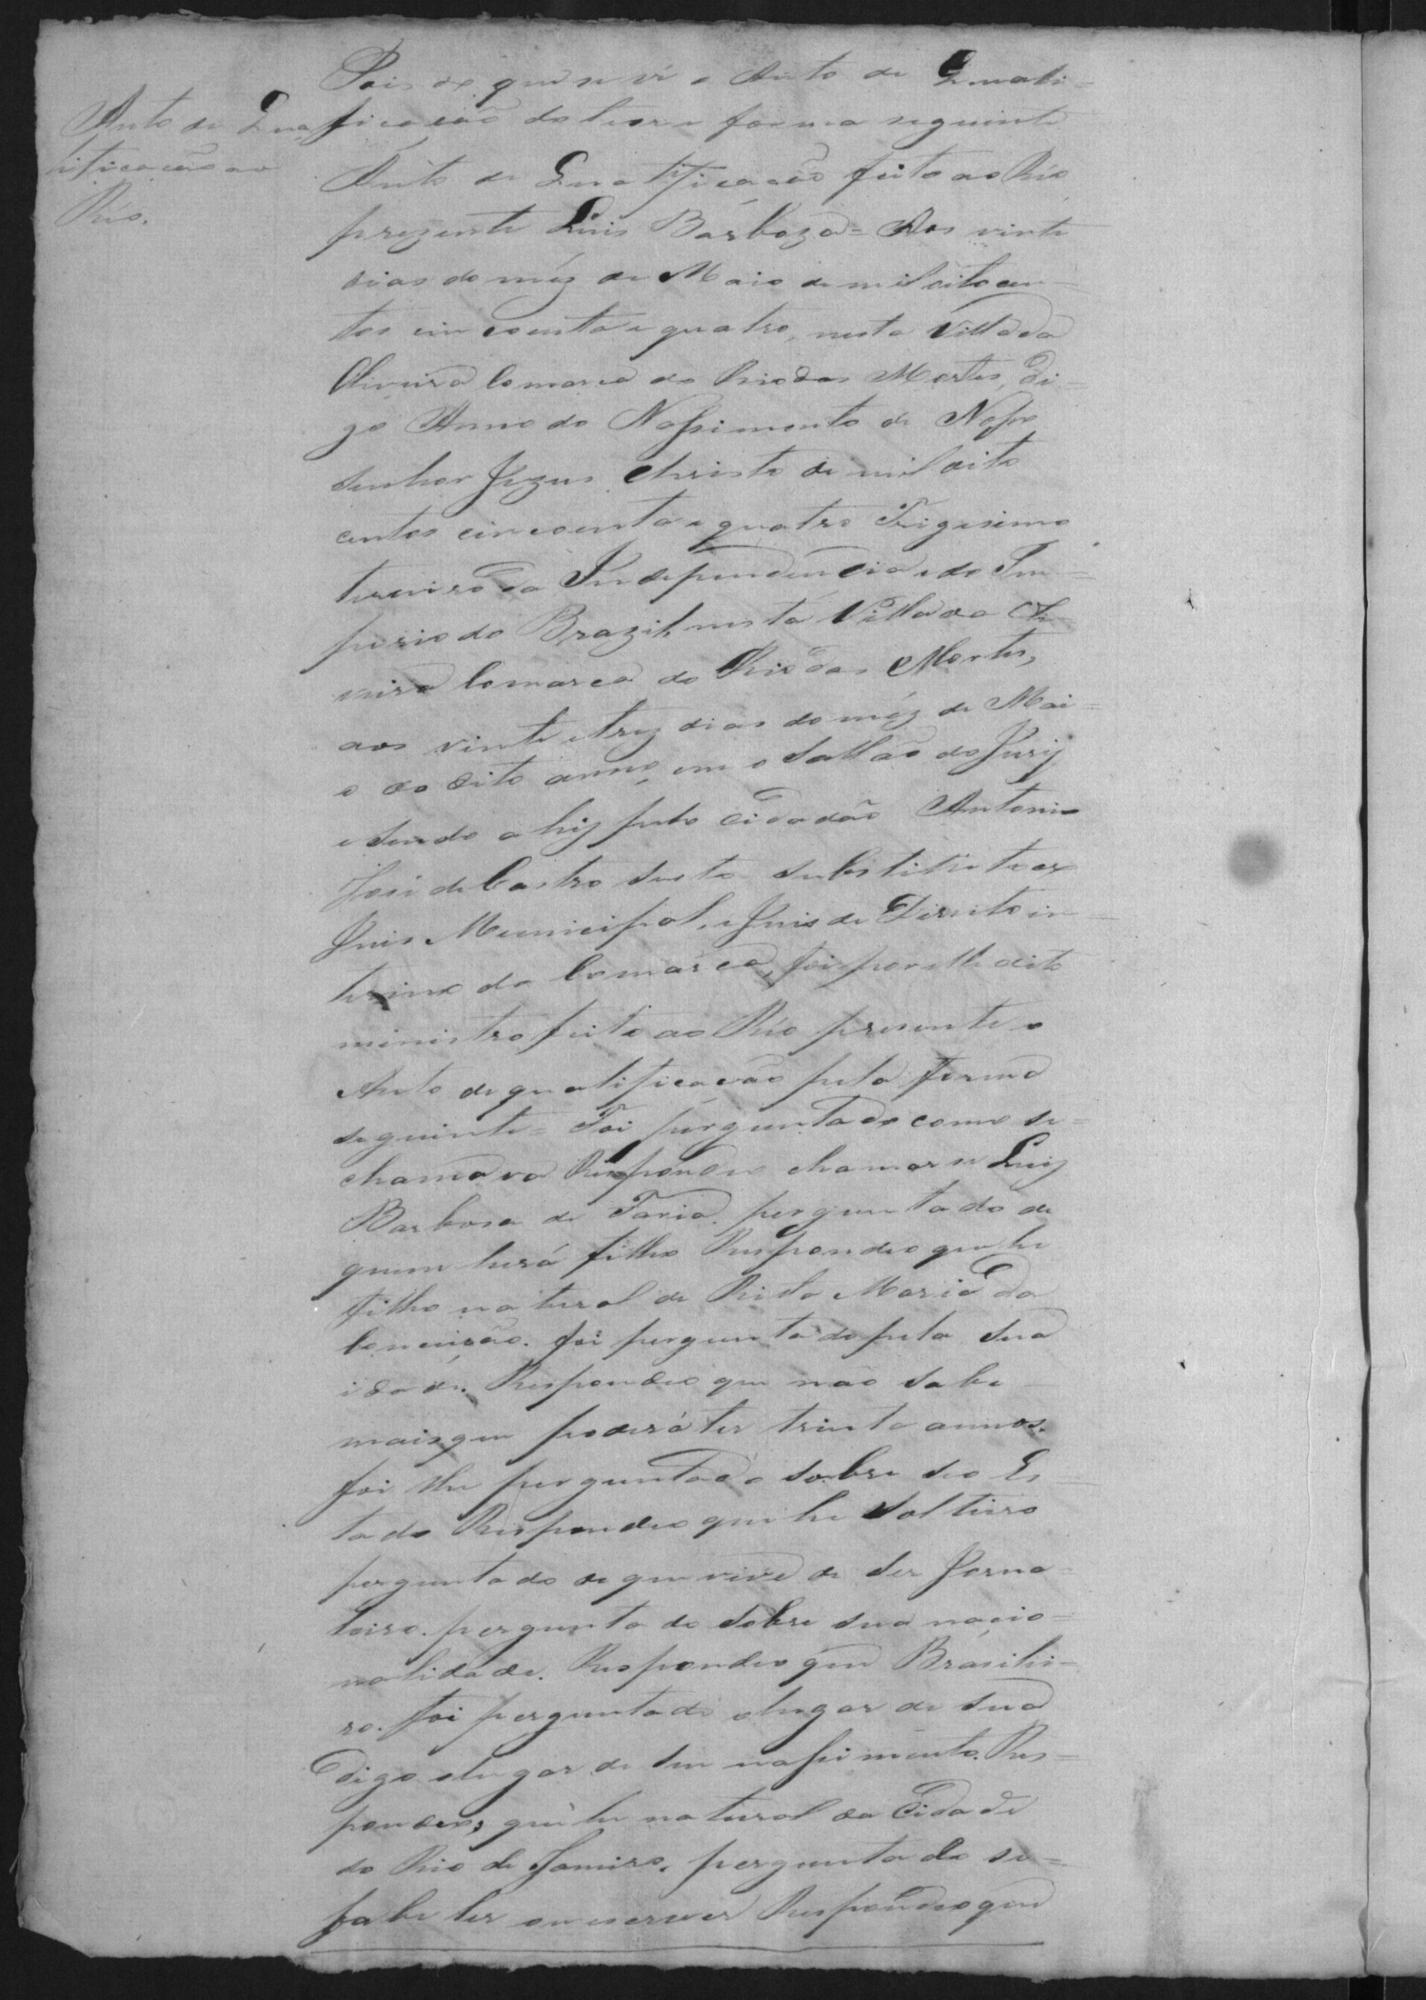 Auto de Qua
lificação ao
Réo.
Pois de que se vê o Auto de Quali-
ficação do theor e forma seguinte
Auto de Qualificação feito ao Réo
prezente Luis Barboza = Aos vinte
dias do méz de Maio de mil oitocen-
tos cincoenta e quatro, nesta Villa da
Oliveira Comarca do Rio das Mortes, Di-
go Anno do Nascimento de Nosso
Senhor Jezus Christo de mil oito
centos cincoenta e quatro Trigesimo
terceiro da Independencia e do Im-
perio do Brazil, nesta Villa da Oli
veira Comarca do Rio das Mortes,
aos vinte e trez dias do méz de Mai-
o do dito anno, em o Sallão do Jury
e sendo ahy pelo Cidadão Antonio
José de Castro substituto ao
Juis Municipal, e Juis de Direito in-
terino da Comarca, foi por elle dito
ministro feito ao Réo presente o
Auto de qualificação pela forma
seguinte = Foi perguntado como se-
chamava Respondeo chamar se Luiz
Barbosa de Faria. perguntado de
quem hera filho Respondeo que he
filho natural de Rita Maria da
Conceição. foi perguntado pela sua
idade. Respondeo que não sabe
mais que poderá ter trinta annos.
foi lhe perguntado sobre seo Es-
tado Respondeo que he Solteiro
perguntado de que vive de ser Jorna-
leiro. perguntado sobre sua nacio-
nalidade. Respondeo que Brasilei-
ro. foi perguntado o lugar de sua
Digo o lugar de seu nascimento. Res-
pondeo, que he natural da Cidade
do Rio de Janeiro. perguntado se-
sabe ler ou escrever Respondeo que